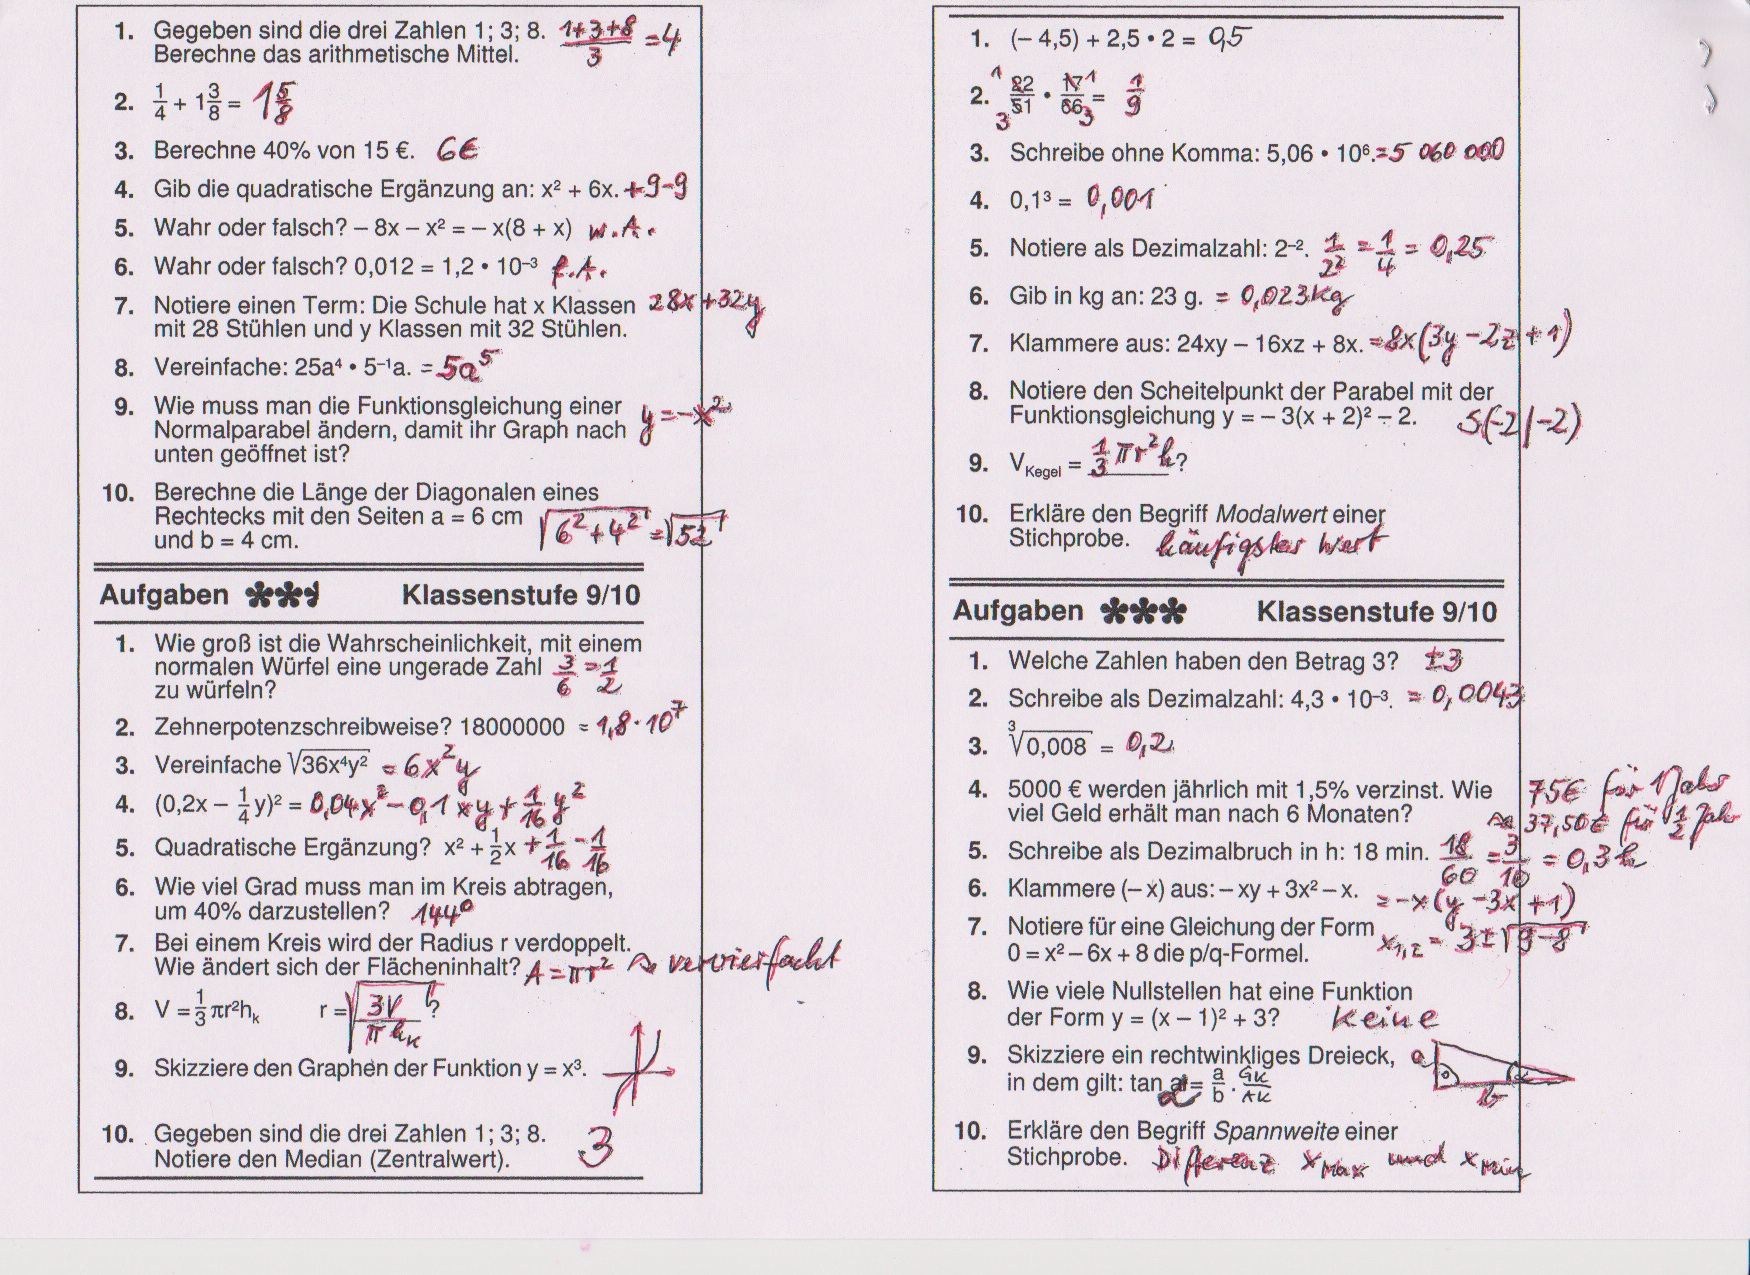 1. Gegeben sind die drei Zahlen 1; 3; 8. (1+3+8)/3 = 4
Berechne das arithmetische Mittel.
2. 1/4 + 1 3/8 = 1 5/8
3. Berechne 40% von 15 €. 6€
4. Gib die quadratische Ergänzung an: x² + 6x. +9-9
5. Wahr oder falsch? – 8x – x² = – x(8 + x) w.A.
6. Wahr oder falsch? 0,012 = 1,2 • 10⁻³ f.A.
7. Notiere einen Term: Die Schule hat x Klassen 28x+32y
mit 28 Stühlen und y Klassen mit 32 Stühlen.
8. Vereinfache: 25a⁴ • 5⁻¹a. = 5a⁵
9. Wie muss man die Funktionsgleichung einer y = -x²
Normalparabel ändern, damit ihr Graph nach
unten geöffnet ist?
10. Berechne die Länge der Diagonalen eines
Rechtecks mit den Seiten a = 6 cm √(6²+4²) = √52
und b = 4 cm.
Aufgaben Klassenstufe 9/10
1. Wie groß ist die Wahrscheinlichkeit, mit einem
normalen Würfel eine ungerade Zahl 3/6 = 1/2
zu würfeln?
2. Zehnerpotenzschreibweise? 18000000 = 1,8·10⁷
3. Vereinfache √(36x⁴y²) = 6x²y
4. (0,2x – 1/4 y)² = 0,04x² - 0,1xy + 1/16 y²
5. Quadratische Ergänzung? x² + 1/2 x + 1/16 - 1/16
6. Wie viel Grad muss man im Kreis abtragen,
um 40% darzustellen? 144°
7. Bei einem Kreis wird der Radius r verdoppelt.
Wie ändert sich der Flächeninhalt? A = πr² vervierfacht
8. V = 1/3 πr²hₖ r = √(3V/(π hₖ)) ?
9. Skizziere den Graphen der Funktion y = x³.
10. Gegeben sind die drei Zahlen 1; 3; 8. 3
Notiere den Median (Zentralwert).
1. (– 4,5) + 2,5 • 2 = 0,5
2. 22/51 • 17/66 = 1/9
1 1
3 3
3. Schreibe ohne Komma: 5,06 • 10⁶. = 5 060 000
4. 0,1³ = 0,001
5. Notiere als Dezimalzahl: 2⁻². 1/2² = 1/4 = 0,25
6. Gib in kg an: 23 g. = 0,023kg
7. Klammere aus: 24xy – 16xz + 8x. = 8x(3y - 2z + 1)
8. Notiere den Scheitelpunkt der Parabel mit der
Funktionsgleichung y = – 3(x + 2)² – 2. S(-2|-2)
9. V Kegel = 1/3 πr²h ?
10. Erkläre den Begriff Modalwert einer
Stichprobe. häufigster Wert
Aufgaben Klassenstufe 9/10
1. Welche Zahlen haben den Betrag 3? ±3
2. Schreibe als Dezimalzahl: 4,3 • 10⁻³. = 0,0043
3. ³√0,008 = 0,2
4. 5000 € werden jährlich mit 1,5% verzinst. Wie 75€ für 1 Jahr
viel Geld erhält man nach 6 Monaten? 37,50€ für 1/2 Jahr
5. Schreibe als Dezimalbruch in h: 18 min. 18/60 = 3/10 = 0,3 h
6. Klammere (– x) aus: – xy + 3x² – x. = -x(y - 3x + 1)
7. Notiere für eine Gleichung der Form x₁,₂ = 3±√(9-8)
0 = x² – 6x + 8 die p/q-Formel.
8. Wie viele Nullstellen hat eine Funktion
der Form y = (x – 1)² + 3? keine
9. Skizziere ein rechtwinkliges Dreieck, a
in dem gilt: tan α = a/b. GK/AK α b
10. Erkläre den Begriff Spannweite einer
Stichprobe. Differenz xMax und xMin